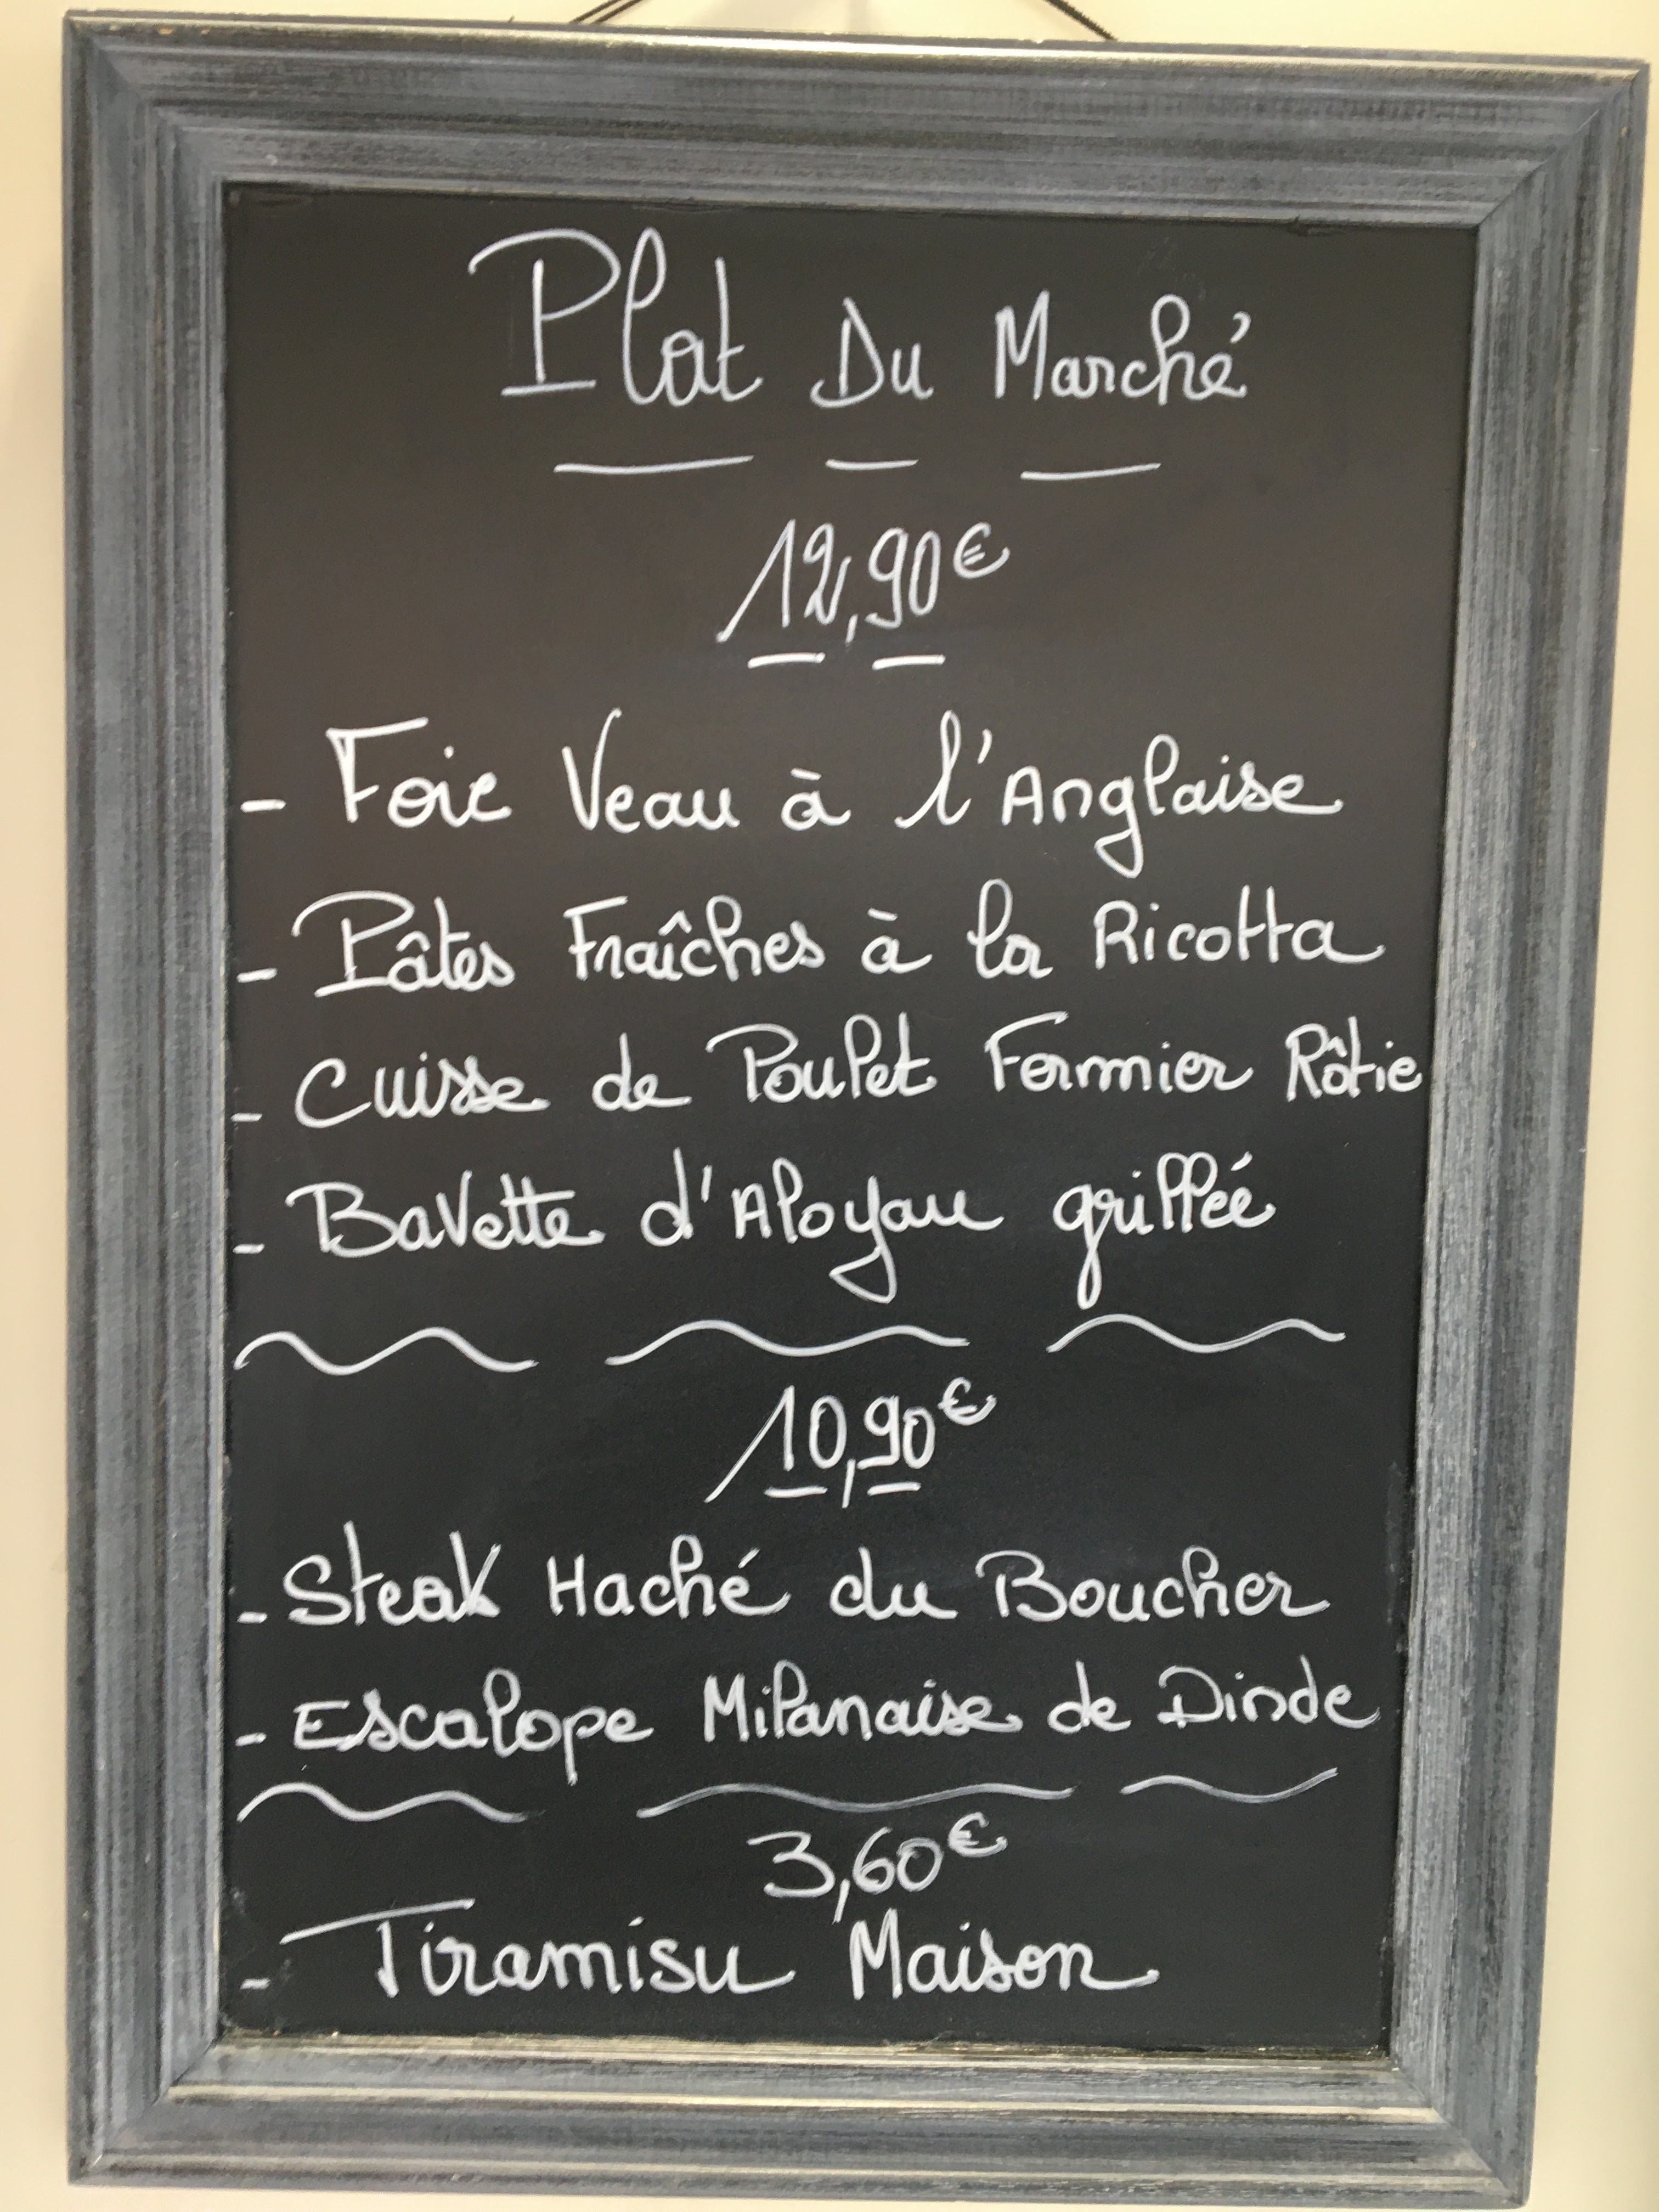 Plat Du Marché
12,90€
- Foie Veau à l'Anglaise
- Pâtes Fraîches à la Ricotta
- Cuisse de Poulet Fermier Rôtie
- Bavette d'Aloyau grillée
10,90€
- Steak Haché du Boucher
- Escalope Milanaise de Dinde
3,60€
- Tiramisu Maison